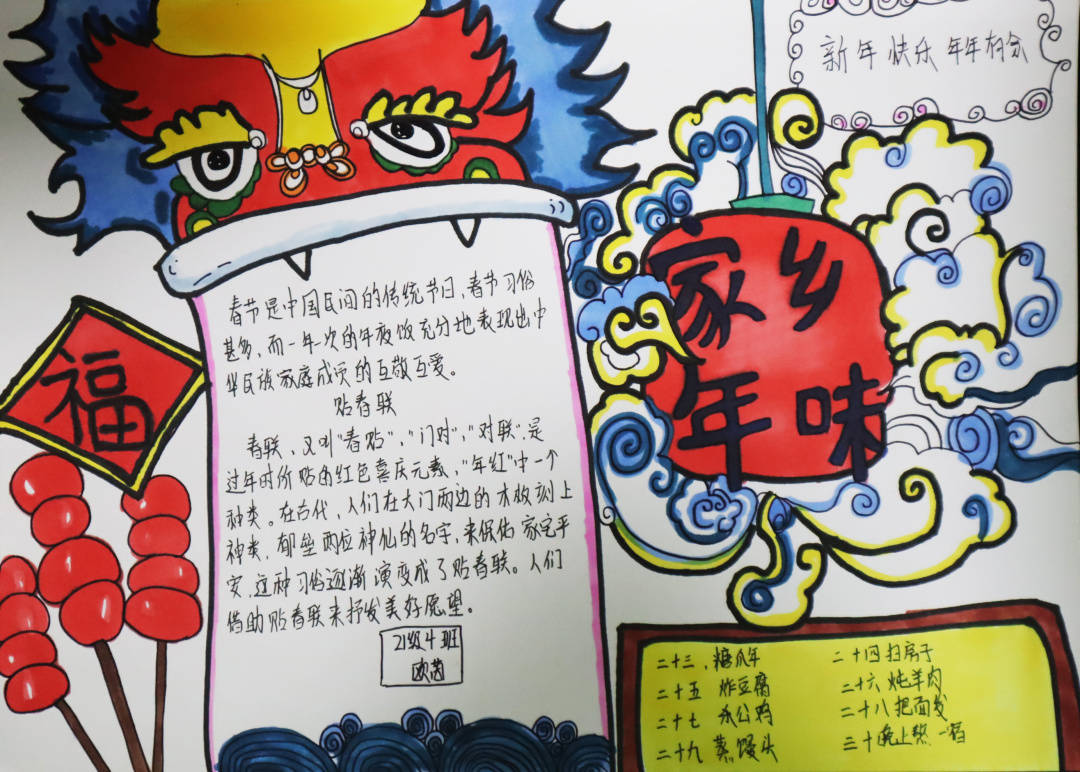 新年快乐 年年有余
家乡
年味
福
春节是中国民间的传统节日，春节习俗
甚多，而一年一次的年夜饭充分地表现出中
华民族家庭成员的互敬互爱。
贴春联
春联，又叫"春贴"，"门对"，"对联"，是
过年时所贴的红色喜庆元素，"年红"中一个
种类。在古代，人们在大门两边的木板刻上
神类，郁垒两位神仙的名字，来保佑家宅平
安，这种习俗逐渐演变成了贴春联。人们
借助贴春联来抒发美好愿望。
21级4班
欧茵
二十三，糖瓜年 二十四扫房子
二十五 炸豆腐 二十六炖羊肉
二十七 杀公鸡 二十八把面发
二十九蒸馒头 三十晚上熬一宿